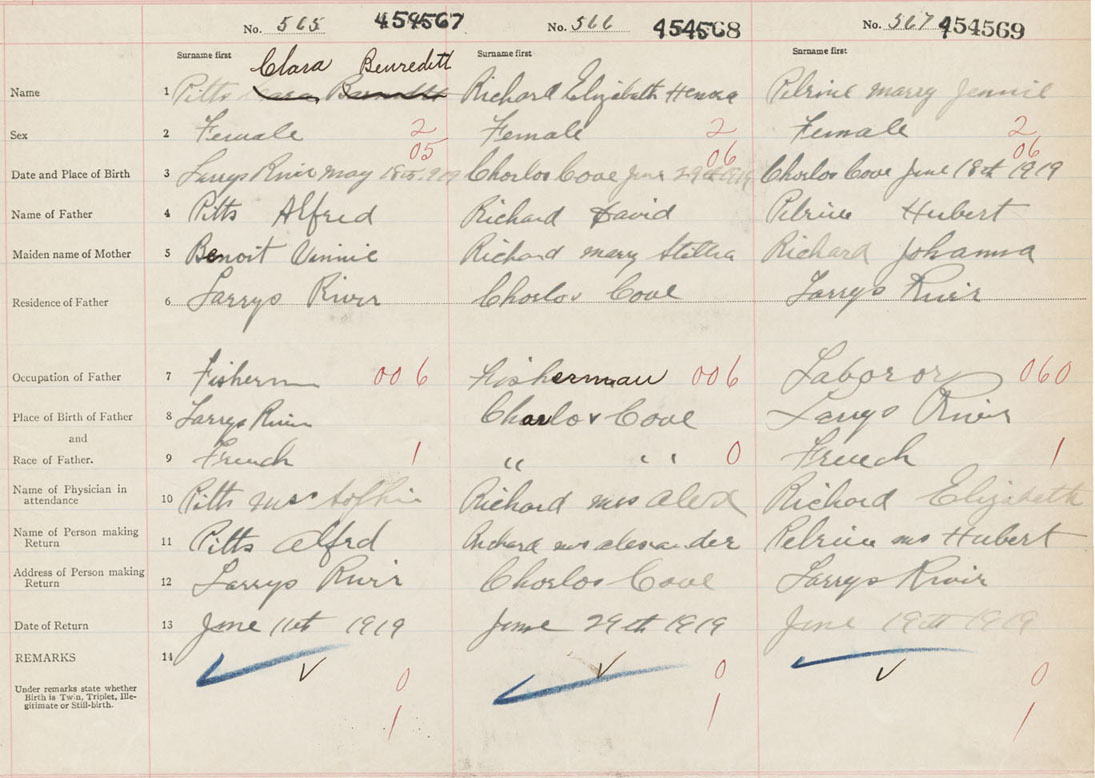 No. 565 454567 No. 566 454568 No. 567 454569
Surname first Surname first Surname first
Clara Benredett
Name 1 Pitts Clara Richard Elizabeth Henora Pelrine marry Jennie
Sex 2 Female 2 Female 2 Female 2
05 06 06
Date and Place of Birth 3 Larrys River may 18th 919 Chorlos Cove June 29th 1919 Chorlos Cove June 18th 1919
Name of Father 4 Pitts Alfred Richard David Pelrine Hubert
Maiden name of Mother 5 Benoit Vinnie Richard marry Stella Richard Johanna
Residence of Father 6 Larrys River Chorlos Cove Larrys River
Occupation of Father 7 Fisherm 006 Fisherman 006 Labor or 060
Place of Birth of Father 8 Larrys River Charlos Cove Larrys River
and
Race of Father. 9 French 1 " " " 0 French 1
Name of Physician in
attendance 10 Pitts mrs Sophie Richard mrs Alexd Richard Elizabeth
Name of Person making
Return 11 Pitts Alfrd Richard mrs alexander Pelrine ms Hubert
Address of Person making
Return 12 Larrys River Chorlos Cove Larrys River
Date of Return 13 June 11th 1919 June 29th 1919 June 19th 1919
REMARKS 14
0 0 0
Under remarks state whether
Birth is Twin, Triplet, Ille-
gitimate or Still-birth.
1 1 1